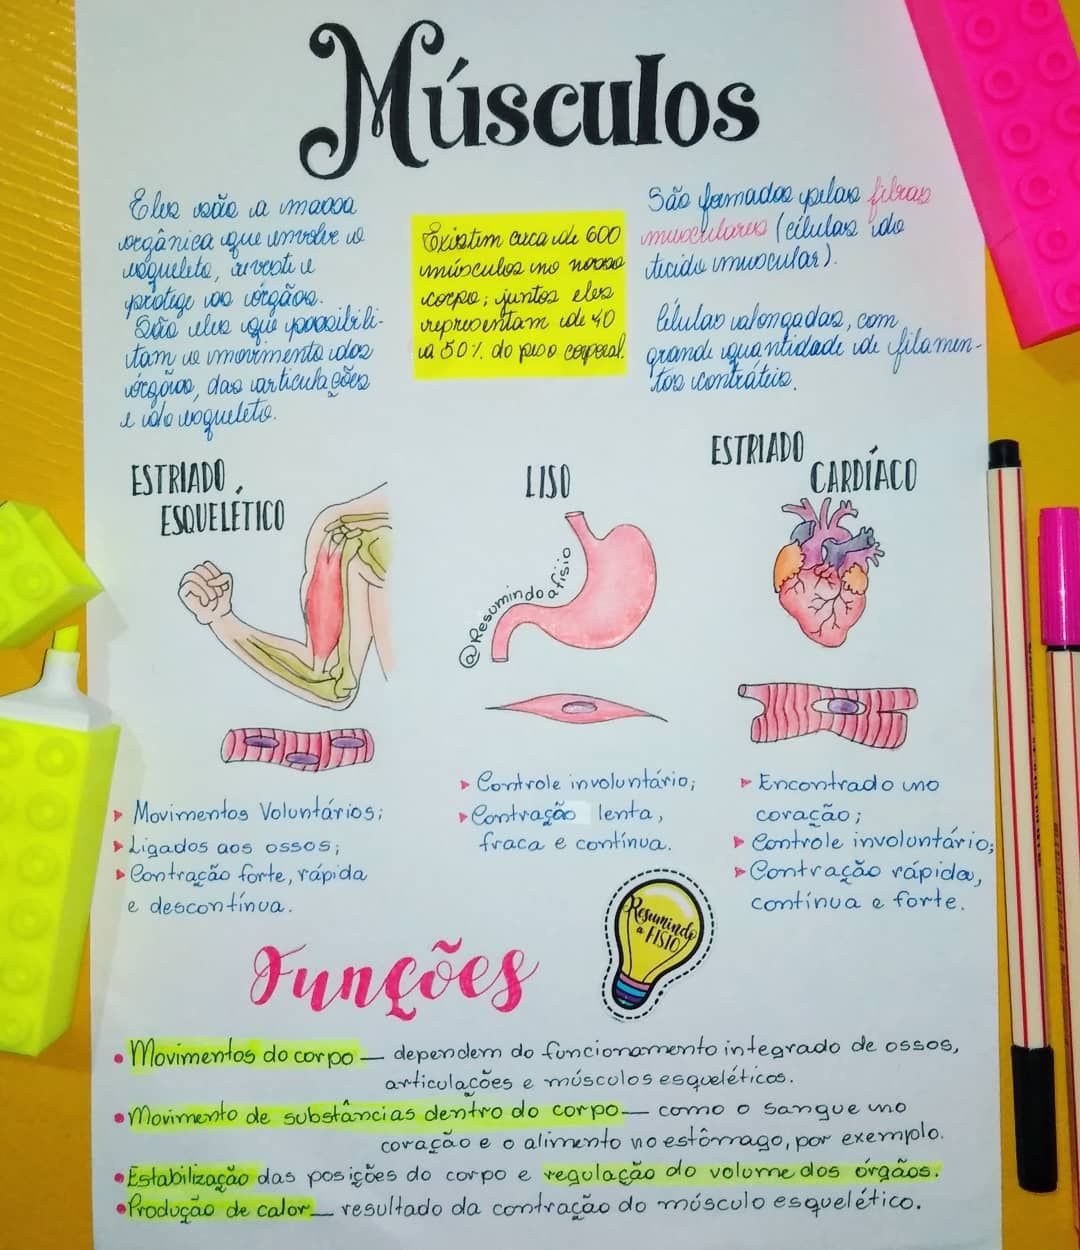 Músculos
Eles são a massa
orgânica que envolve o
esqueleto, reveste e
protege os órgãos.
São eles que possibili-
tam o movimento dos
órgãos, das articulações
e do esqueleto.
Existem cerca de 600
músculos no nosso
corpo; juntos eles
representam de 40
a 50% do peso corporal.
São formados pelas fibras
musculares (células do
tecido muscular).
Células alongadas, com
grande quantidade de filamen-
tos contráteis.
ESTRIADO
ESQUELÉTICO
LISO
ESTRIADO
CARDÍACO
@Resumindoafisio
➤ Movimentos Voluntários;
➤ Ligados aos ossos;
➤ Contração forte, rápida
e descontínua.
➤ Controle involuntário;
➤ Contração lenta,
fraca e contínua.
➤ Encontrado no
coração;
➤ Controle involuntário;
➤ Contração rápida,
contínua e forte.
Resumindo
a FISIO
Funções
• Movimentos do corpo — dependem do funcionamento integrado de ossos,
articulações e músculos esqueléticos.
• Movimento de substâncias dentro do corpo — como o sangue no
coração e o alimento no estômago, por exemplo.
• Estabilização das posições do corpo e regulação do volume dos órgãos.
• Produção de calor — resultado da contração do músculo esquelético.